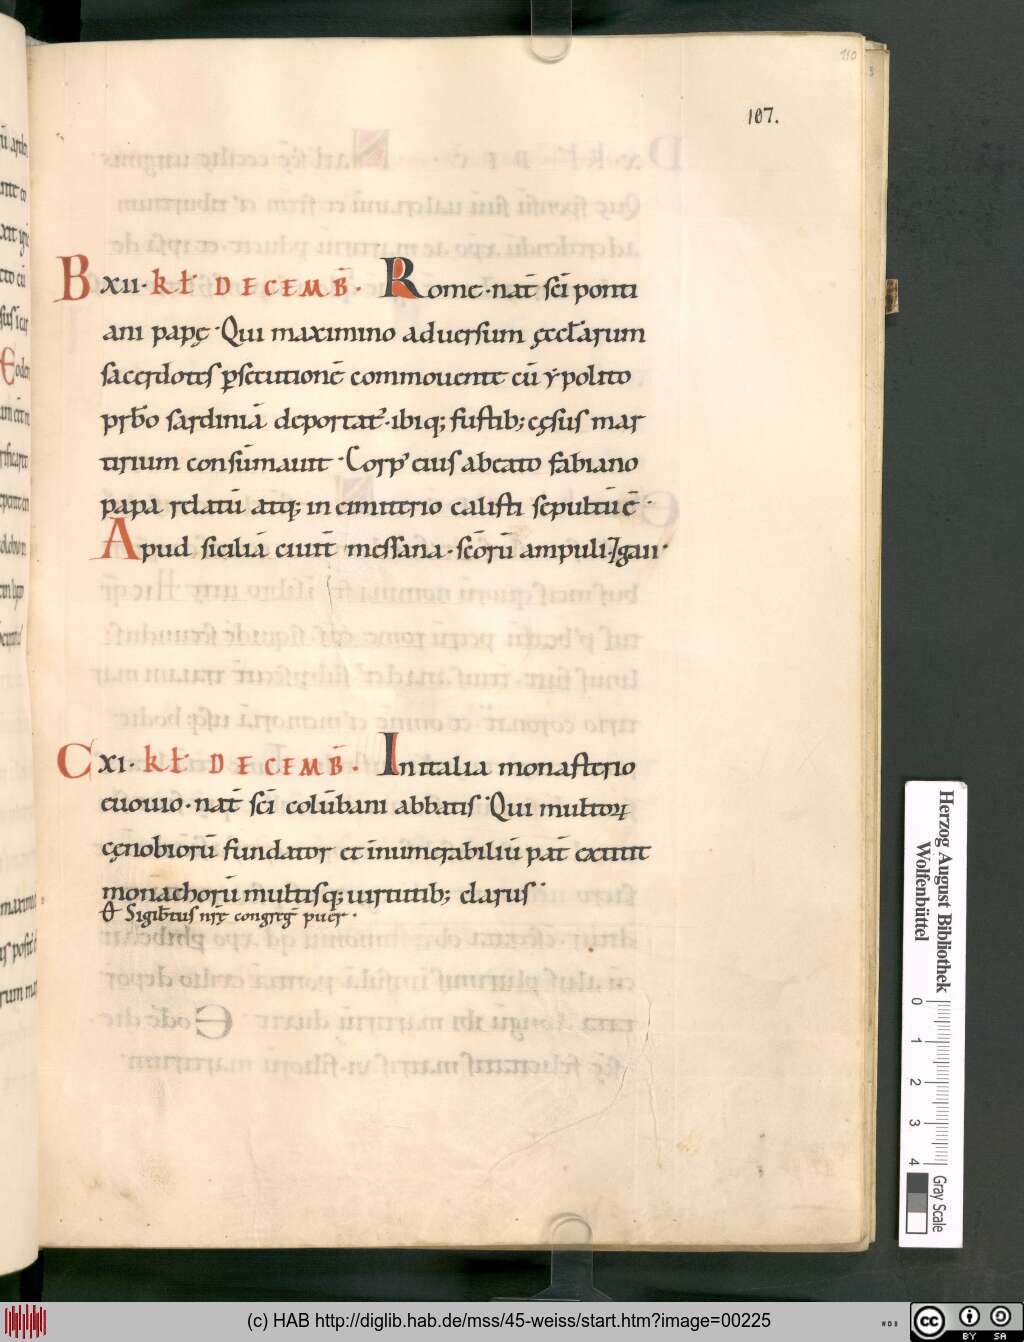 110
107.
B XII· kł DECEMB̄· Rome · nat̄ sc̄i ponti
ani papę · Qui maximino aduersum ęccłarum
sacerdotes ꝑsecutionē commouente cū ẏpolito
prb̄o sardiniā deportatꝰ · ibiq; fustib; cęsus mar
tirium consūmauit · Corpꝰ eius a beato fabiano
papa relatū atq; in cimiterio calisti sepultū ē ·
Apud siciliā ciuit̄ messana · sc̄orū ampuli ⁊ gaii ·
C XI· kł DECEMB̄· In italia monasterio
euouio · nat̄ sc̄i colūbani abbatis · Qui multoꝝ
cęnobiorū fundator et īnumerabiliū pat̄ extitit
monachorū multisq; uirtutib; clarus ·
Sigib̄tus nrę congreḡ puer ·
Herzog August Bibliothek
Wolfenbüttel
0 1 2 3 4
Gray Scale
(c) HAB http://diglib.hab.de/mss/45-weiss/start.htm?image=00225
cc BY SA